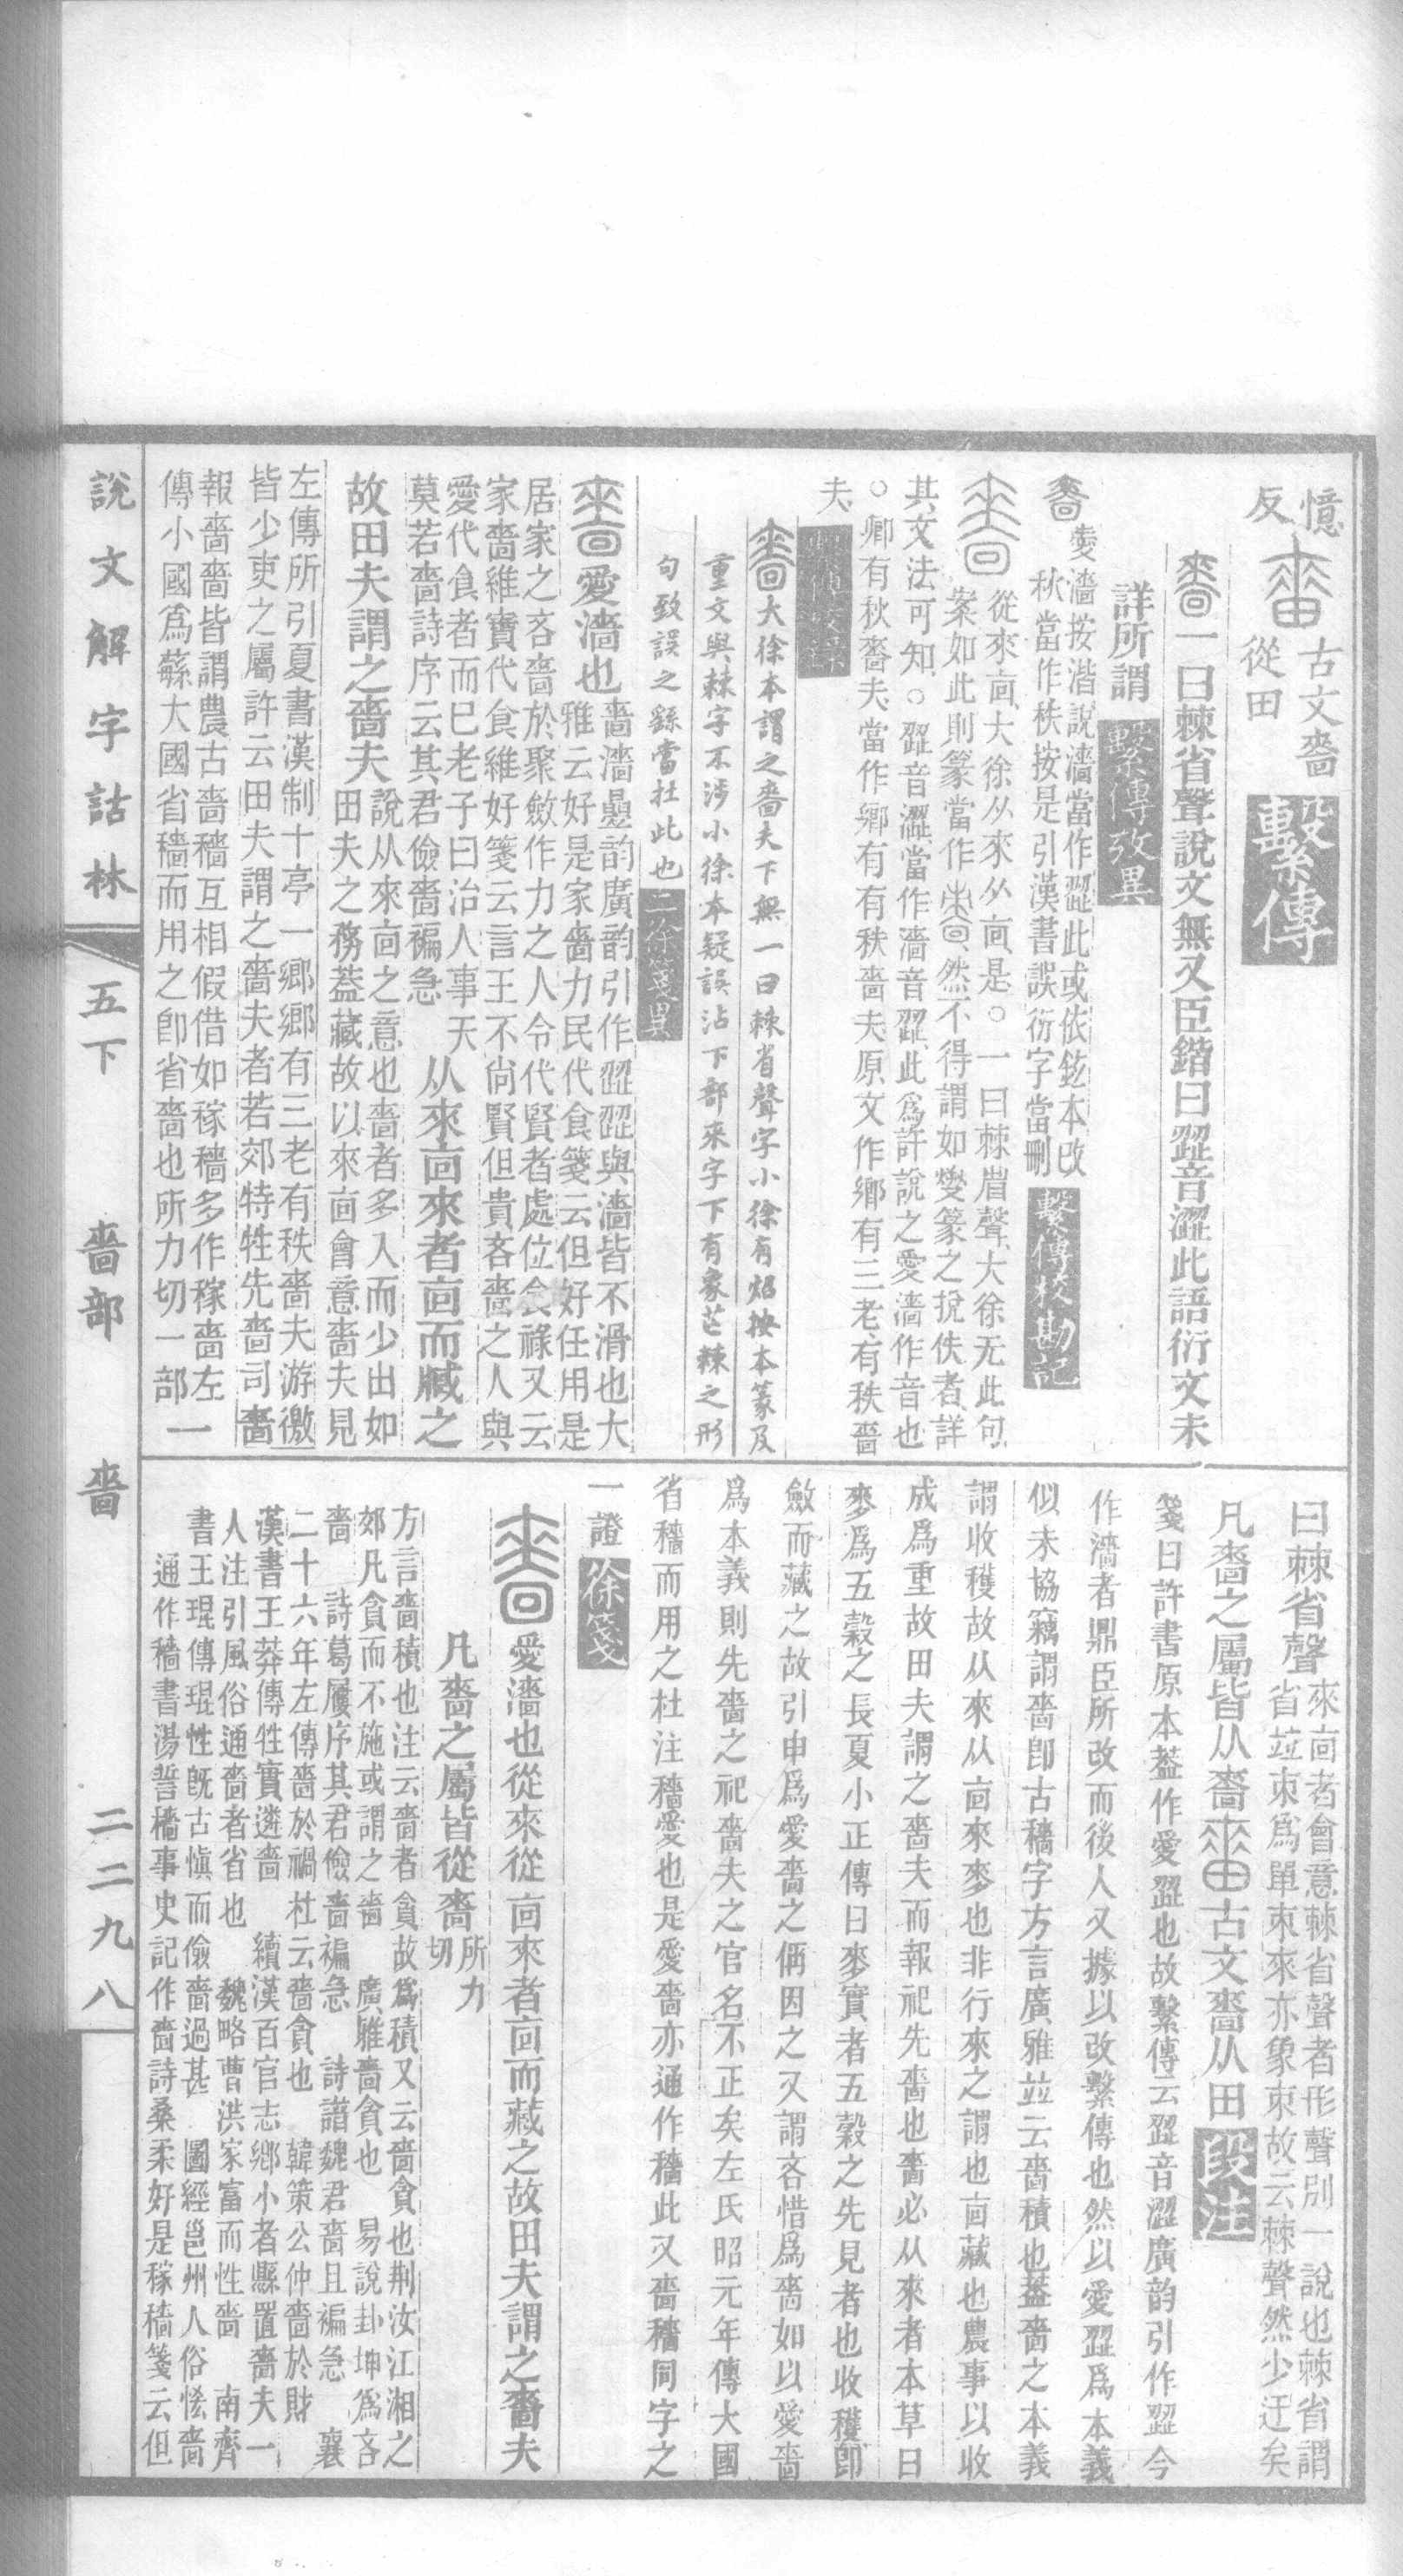 憶
反
古文嗇
從田
繫傳
一曰棘省聲說文無又臣鍇曰歰音澀此語衍文未
詳所謂
繫傳攷異
嗇
㜕濇按濇說濇當作歰此或依鉉本改
秋當作秩按是引漢書誤衍字當刪
繫傳校勘記
從來㐭大徐从來从㐭是○一曰棘省聲大徐无此句
案如此則篆當作
然不得謂如㸐篆之挩佚者詳
其文法可知○歰音澀當作濇音歰此爲許說之愛濇作音也
○鄉有秋嗇夫當作鄉有有秩嗇夫原文作鄉有三老有秩嗇
夫
大徐本謂之嗇夫下無一曰棘省聲字小徐有炤按本篆及
重文與棘字不涉小徐本疑誤沾下部來字下有象芒朿之形
句致誤之繇當在此也
二徐箋異
愛濇也
嗇濇曡韵廣韵引作歰歰與濇皆不滑也大
雅云好是家嗇力民代食箋云但好任用是
居家之吝嗇於聚斂作力之人令代賢者處位食祿又云
家嗇維寶代食維好箋云言王不尚賢但貴吝嗇之人與
愛代食者而已老子曰治人事天
莫若嗇詩序云其君儉嗇褊急
从來㐭來者㐭而臧之
故田夫謂之嗇夫
說从來㐭之意也嗇者多入而少出如
田夫之務葢藏故以來㐭會意嗇夫見
左傳所引夏書漢制十亭一鄉鄉有三老有秩嗇夫游徼
皆少吏之屬許云田夫謂之嗇夫者若郊特牲先嗇司嗇
報嗇嗇皆謂農古嗇穡互相假借如稼穡多作稼嗇左
傳小國爲蘇大國省穡而用之卽省嗇也所力切一部
一
曰棘省聲
來㐭者會意棘省聲者形聲別一說也棘省謂
省竝朿爲單朿來亦象朿故云棘聲然少迂矣
凡嗇之屬皆从嗇
古文嗇从田
段注
箋曰許書原本葢作愛歰也故繫傳云歰音澀廣韵引作歰今
作濇者鼎臣所改而後人又據以改繫傳也然以愛歰爲本義
似未協竊謂嗇卽古穡字方言廣雅竝云嗇積也葢嗇之本義
謂收穫故从來从㐭來麥也非行來之謂也㐭藏也農事以收
成爲重故田夫謂之嗇夫而報祀先嗇也嗇必从來者本草曰
麥爲五穀之長夏小正傳曰麥實者五穀之先見者也收穫卽
斂而藏之故引申爲愛嗇之偁因之又謂吝惜爲嗇如以愛嗇
爲本義則先嗇之祀嗇夫之官名不正矣左氏昭元年傳大國
省穡而用之杜注穡愛也是愛嗇亦通作穡此又嗇穡同字之
一證
徐箋
愛濇也從來從㐭來者㐭而藏之故田夫謂之嗇夫
凡嗇之屬皆從嗇
所力
切
方言嗇積也注云嗇者貪故爲積又云嗇貪也荆汝江湘之
郊凡貪而不施或謂之嗇　廣雅嗇貪也　易說卦坤爲吝
嗇　詩葛屨序其君儉嗇褊急　詩譜魏君嗇且褊急　襄
二十六年左傳嗇於禍杜云嗇貪也　韓策公仲嗇於財
漢書王莽傳牲實遴嗇　續漢百官志鄉小者縣置嗇夫一
人注引風俗通嗇者省也　魏略曹洪家富而性嗇　南齊
書王琨傳琨性旣古愼而儉嗇過甚　圖經邕州人俗恡嗇
通作穡書湯誓穡事史記作嗇詩桑柔好是稼穡箋云但
說文解字詁林
五下
嗇部
嗇
二二九八